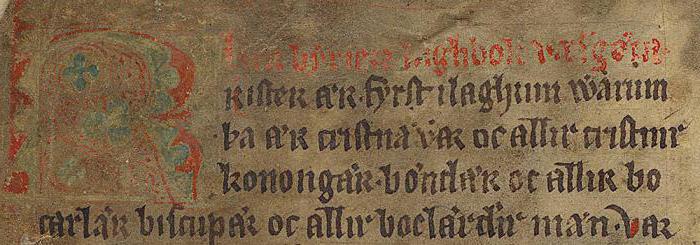 laghbok
Krister ær fyrst ilaghum warum
þa ær cristna var oc allir cristnir
konongær. böndær oc allir bo
carlær biscupær oc allir boclærdir mæn. var